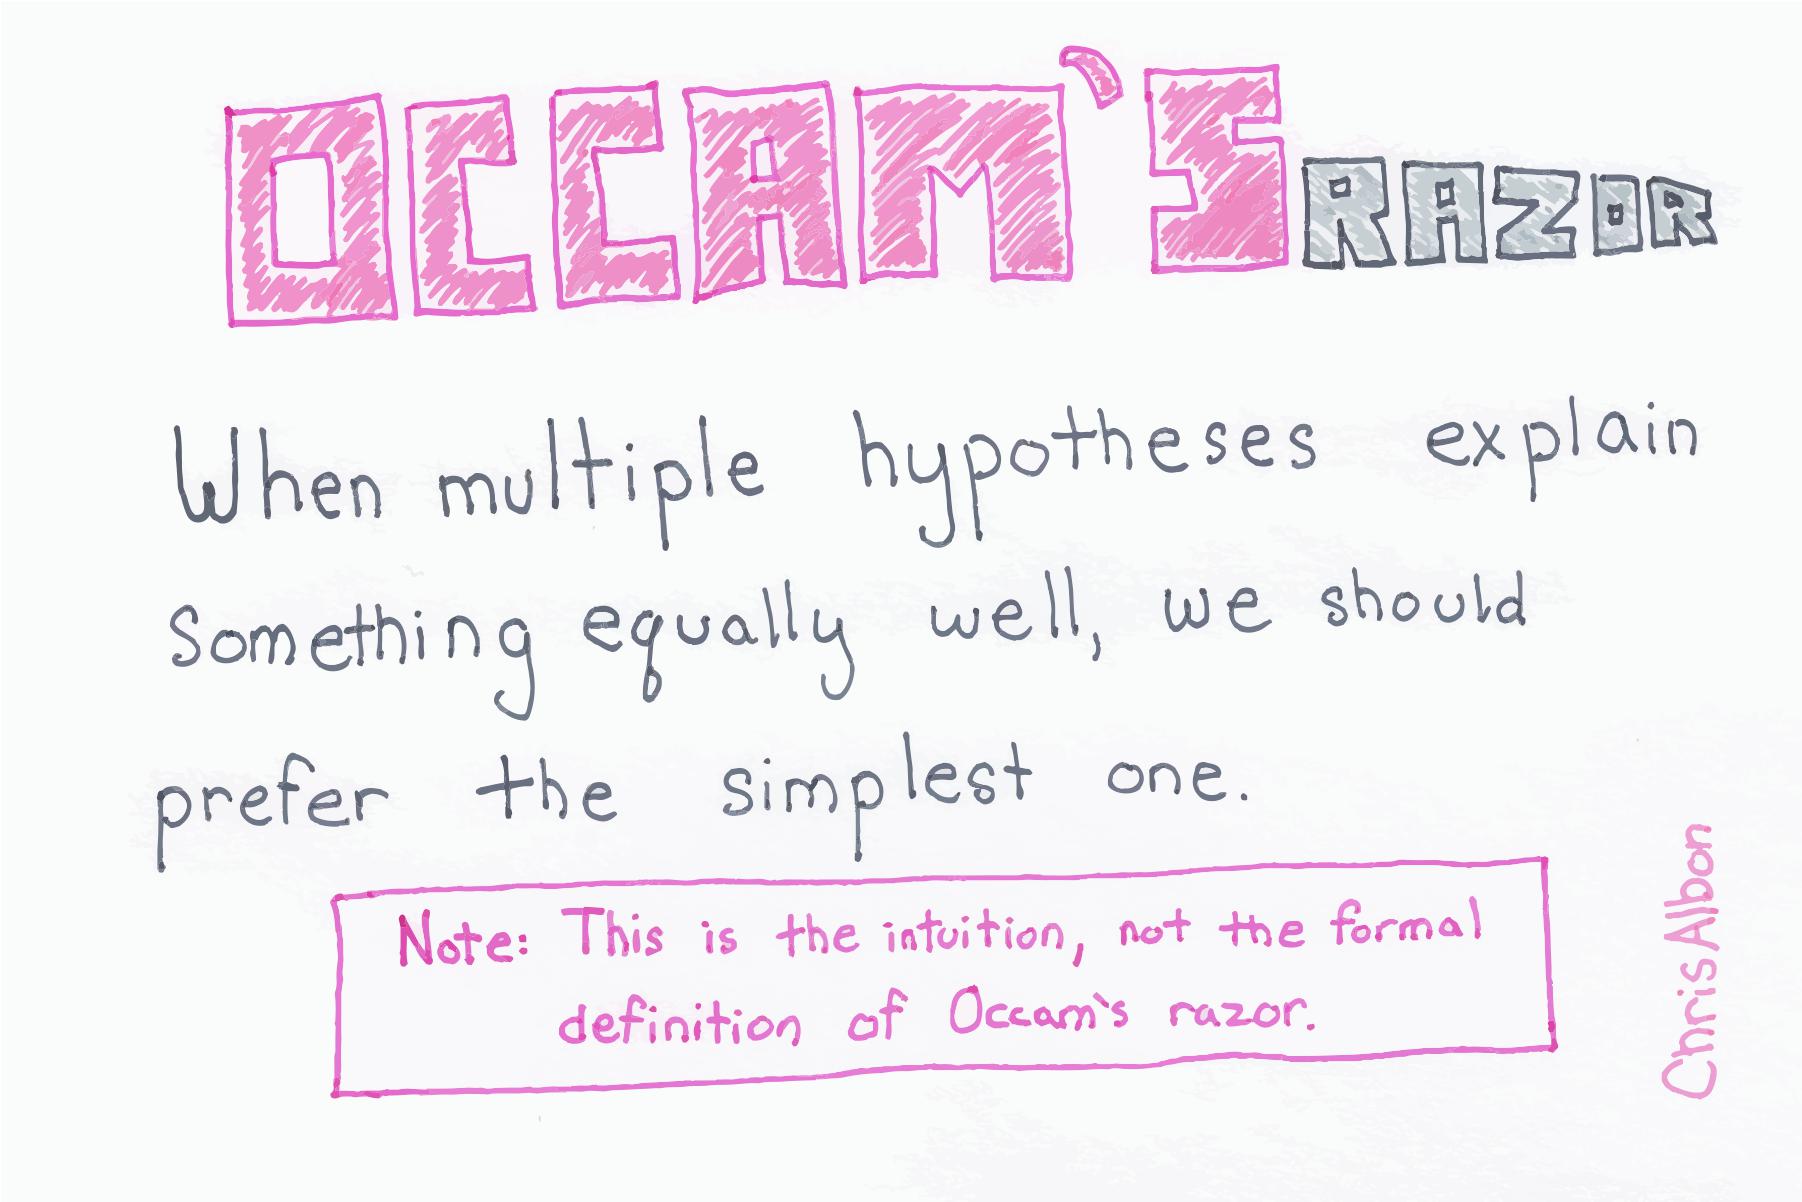 OCCAM`S RAZOR
When multiple hypotheses explain
something equally well, we should
prefer the simplest one.
Note: This is the intuition, not the formal
definition of Occam`s razor.
Chris Albon